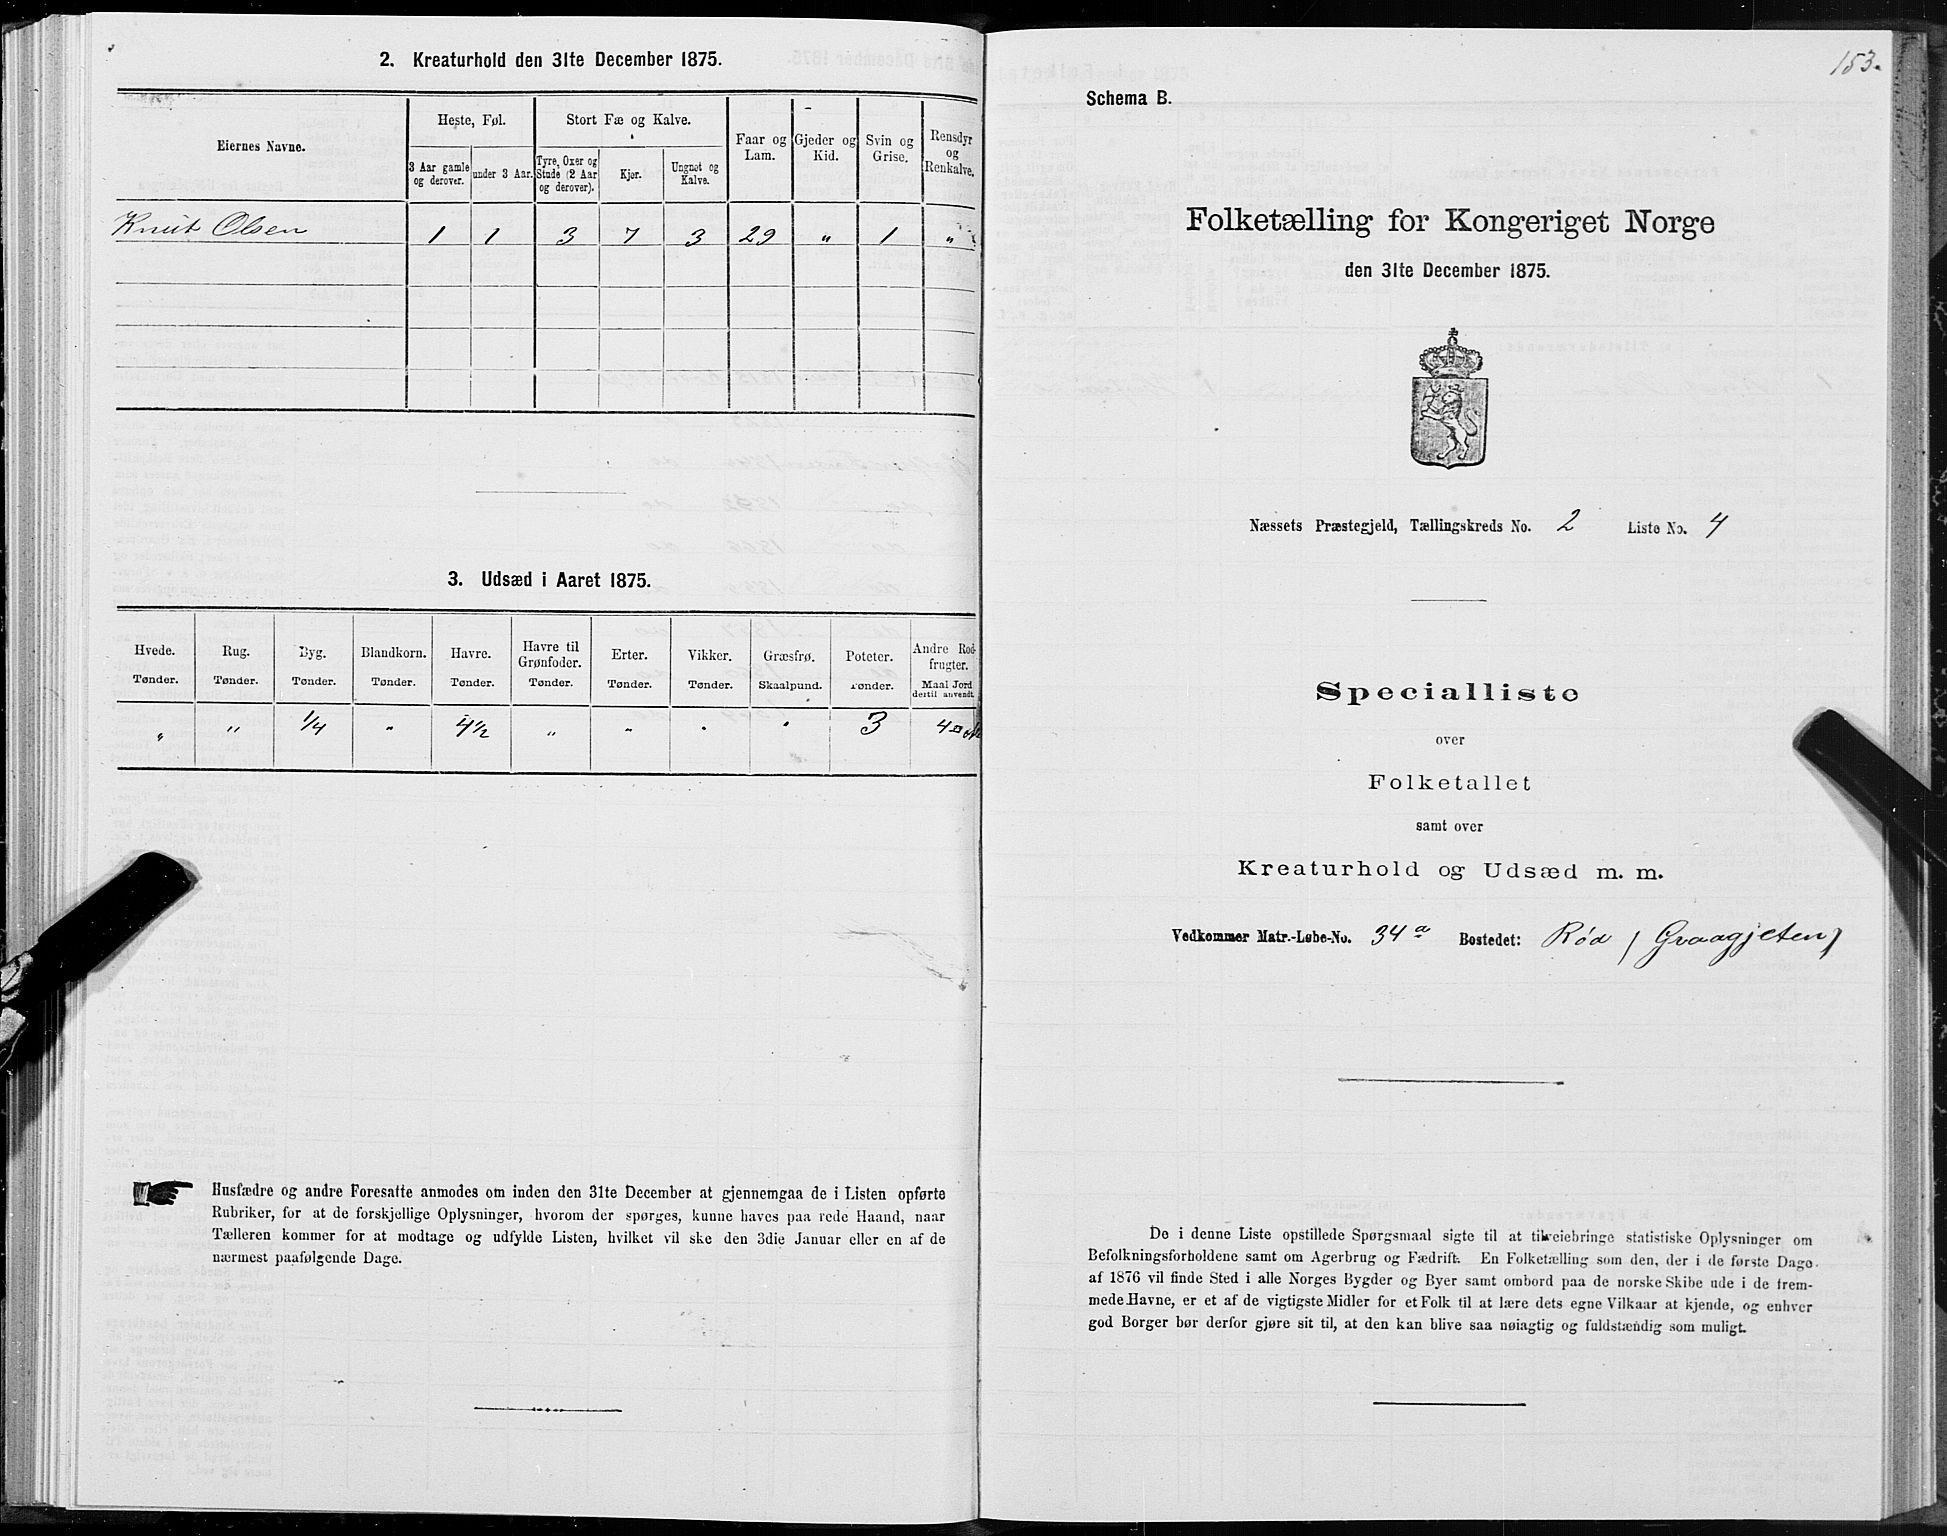 2. Kreaturhold den 31te December 1875.
Eiernes Navne.
Heste, Føl.
Stort Fæ og Kalve.
Faar og Lam.
Gjeder og Kid.
Svin og Grise.
Rensdyr og Renkalve.
3 Aar gamle og derover.
under 3 Aar.
Tyre, Oxer og Stude (2 Aar og derover).
Kjør.
Ungnøt og Kalve.
Knut Olsen 1 1 3 7 3 29 " 1 "
3. Udsæd i Aaret 1875.
Hvede. Rug. Byg. Blandkorn. Havre. Havre til Grønfoder. Erter. Vikker. Græsfrø. Poteter. Andre Rodfrugter.
Tønder. Tønder. Tønder. Tønder. Tønder. Tønder. Tønder. Tønder. Skaalpund. Tønder. Maal Jord dertil anvendt.
" " 1/4 " 4 1/2 " " " " 3 4
Husfædre og andre Foresatte anmodes om inden den 31te December at gjennemgaa de i Listen opførte
Rubriker, for at de forskjellige Oplysninger, hvorom der spørges, kunne haves paa rede Haand, naar
Tælleren kommer for at modtage og udfylde Listen, hvilket vil ske den 3die Januar eller en af de
nærmest paafølgende Dage.
153.
Schema B.
Folketælling for Kongeriget Norge
den 31te December 1875.
Næssets Præstegjeld, Tællingskreds No. 2 Liste No. 4
Specialliste
over
Folketallet
samt over
Kreaturhold og Udsæd m. m.
Vedkommer Matr.-Løbe-No. 34a Bostedet: Rød (Graagjeten)
De i denne Liste opstillede Spørgsmaal sigte til at tilveiebringe statistiske Oplysninger om
Befolkningsforholdene samt om Agerbrug og Fædrift. En Folketælling som den, der i de første Dage
af 1876 vil finde Sted i alle Norges Bygder og Byer samt ombord paa de norske Skibe ude i de frem-
mede Havne, er et af de vigtigste Midler for et Folk til at lære dets egne Vilkaar at kjende, og enhver
god Borger bør derfor gjøre sit til, at den kan blive saa nøiagtig og fuldstændig som muligt.